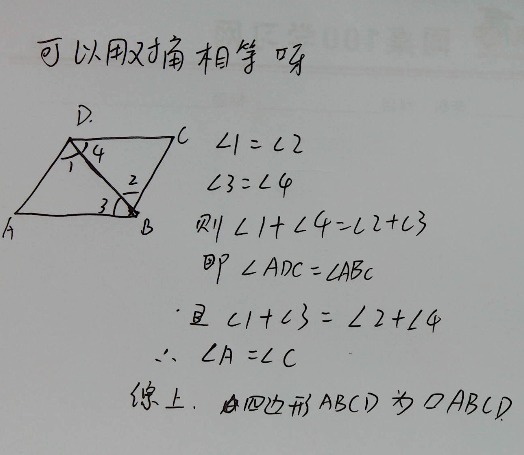 可以用对角相等呀
D.
C
4
1
2
3
A
B
∠1=∠2
∠3=∠4
则∠1+∠4=∠2+∠3
即∠ADC=∠ABC
且∠1+∠3=∠2+∠4
∴∠A=∠C
综上.四边形ABCD为▱ABCD